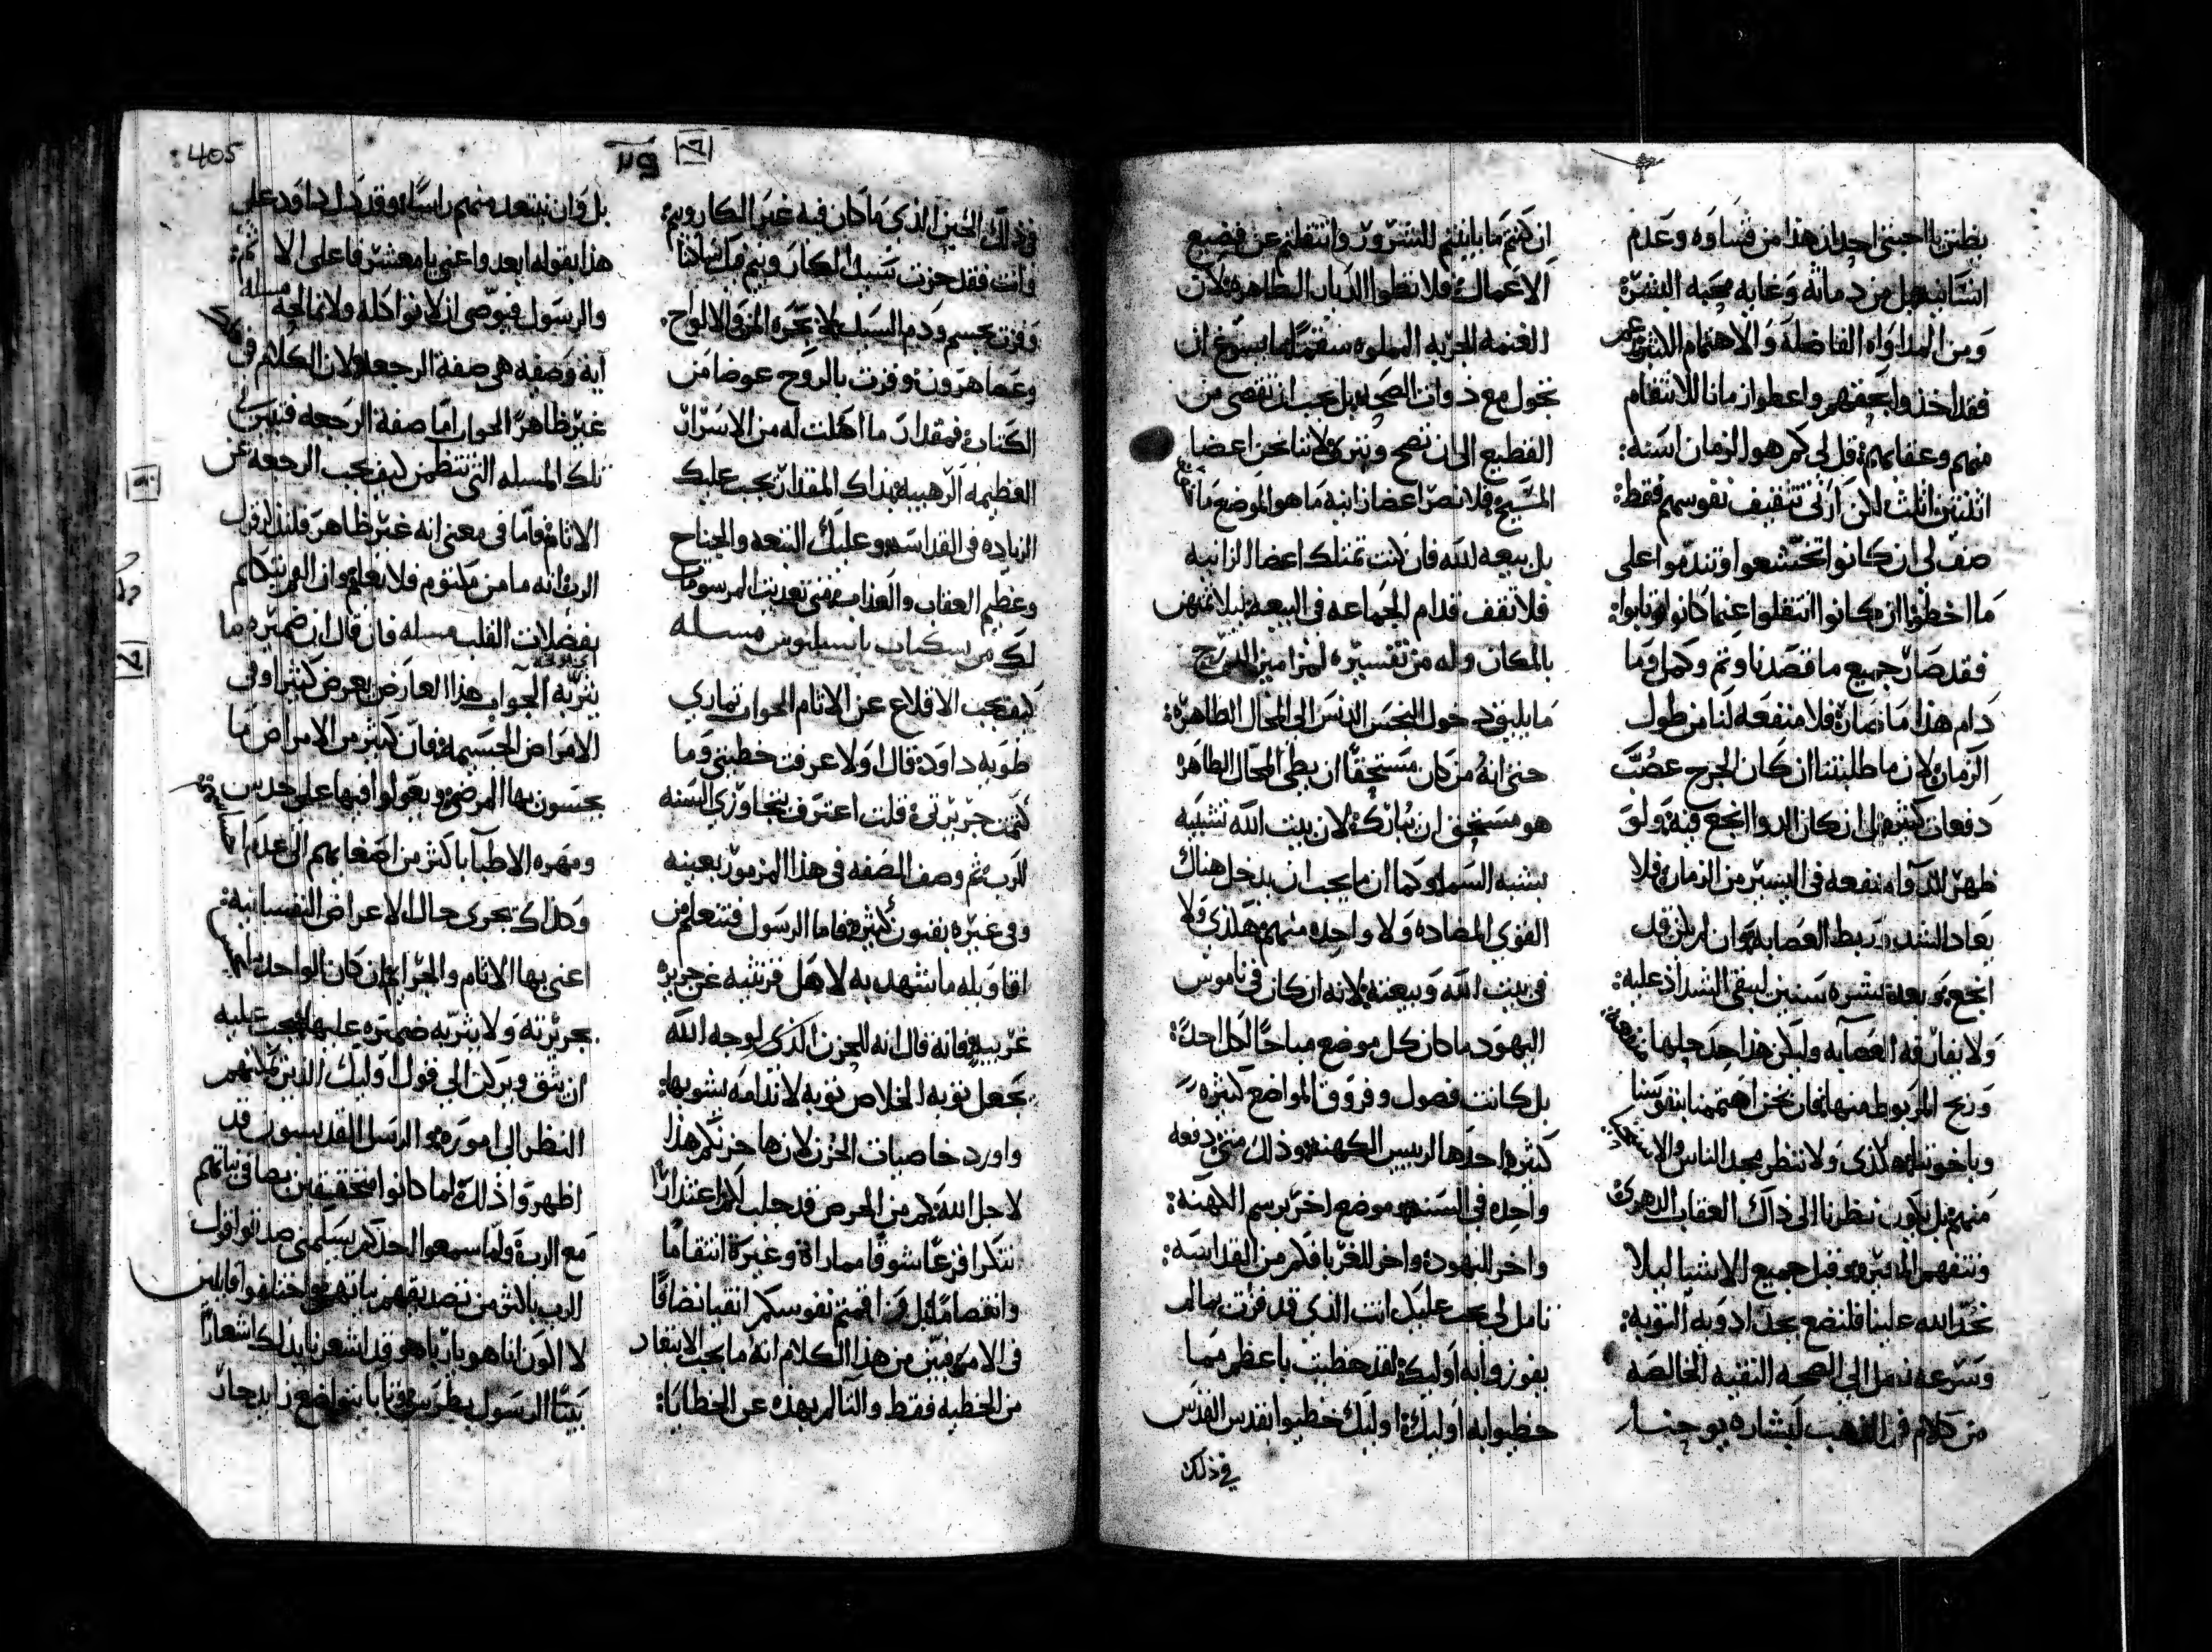 يظن يا احبتي احد ان هذا من قساوه وعدم
انسانيه بل من دماثة وغايه محبه البشرة
ومن المداواه الفاضلة والاهتمام الكثير
فقد اخذوا بحقهم واعطوا زمانا للانتقام
منهم وعقابهم قل لي كم هو الزمان اسنه:
اثنتين اثلث لكن ارني تثقيف نفوسهم فقط:
صف لي ان كانوا تخشعوا وتندموا على
ما اخطوا ان كانوا انتقلوا عنما كانوا وتابوا:
فقد صار جميع ما قصدنا وتم وكمل وما
دام هذا ما صار فلا منفعه لنا من طول
الزمان لان ما طلبتنا ان كان الجرح عصب
دفعات كثيره بل ان كان الدوا انجع فيه ولو
ظهر للدوا منفعه في اليسير من الزمان فلا
يعاد الشد وربط العصابه وان لم يكن قد
انجع ولو بعد عشره سنين ليبقى الشد اذ عليه:
ولا تفارقه العصابه وليكن هذا حد حلها
وربح المربوط منها فان نحن اهتممنا بنفوسنا
وباخوتنا هكذى ولا ننظر مجد الناس والا
منهم بل يكون نظرنا الى ذاك العقاب الدهري
ونتفهم المعيره وقبل جميع الاشيا ليلا
نجد الله علينا فلنضع بجد ادويه التوبه:
وبسرعه نصل الى الصحه النقيه الخالصه
من كلام فم الذهب لبشاره يوحنا
ان كنتم ما باينتم للشرور وانتقلتم عن فضيع
الاعمال فلا تطوا الديار الطاهره لان
الغنمه الجربه المملوه سقما ما يسوغ ان
تجول مع ذوات الصحه بل يجب ان تقصى من
القطيع الى ان تصح وتبرى لاننا نحن اعضا
المسيح فلا نصر اعضا زانيه ما هو الموضع
بل بيعه لله فان كنت تمتلك اعضا الزانيه
فلا تقف قدام الجماعه في البيعه ليلا تمتهن
بالمكان وله من تفسيره لمزامير الدرج
ما يليق دخول النجس الدنس الى المحال الطاهره:
حتى انه من كان مستحقا ان يطى المحال الطاهره
هو مستحق ان يبارك لان بيت الله تشبيه
يشبه السما وكما ان ما يجب ان يدخل هناك
القوى المضاده ولا واحده منهم هكذى ولا
في بيت الله وبيعته لانه ان كان في ناموس
اليهود ما كان كل موضع مباحا لكل احد:
بل كانت فصول وفروق المواضع كثيره
كثيره احدها لرييس الكهنه وذلك متى دفعه
واحده في السنه وموضع اخر برسم الكهنه:
واخر لليهود واخر للغربا فكم من القداسه:
تامل لي يجب عليك انت الذي قد فزت بما لم
يفوزوا به اوليك لقد حظيت باعظم مما
حظيوا به اوليك اوليك حظيوا بقدس القدس
في ذلك
405
في ذلك الحين الذي ما كان فيه غير الكاروبيم:
وانت فقد حزت سيد الكاروبيم ملك ساكنا
وفزت بجسم ودم السيد لا بجره المن والالواح.
وعصا هرون وفزت بالروح عوضا من
الكتاب فمقدار ما اهلت له من الاسرار
العظيمه الرهيبه بذاك المقدار يجب عليك
الزياده في القداسه وعليك التبعه والجناح
وعظيم العقاب والعذاب متى تعديت المرسومات
لك من سكنات باسيليوس مسله
كيف يجب الاقلاع عن الاثام الجواب تماري
طوبه داود قال اولا عرفت خطيتي وما
كتمت جريرتي قلت اعترف بتجاوزي السنه
للرب ثم وصف الصفه في هذا المزمور بعينه
وفي غيره بفنون كثيره فاما الرسول فتتعلم من
اقاويله ما شهد به لاهل قرنثيه عن جريره
غريبه فانه قال انه للحزن الذي لوجه الله
يجعل توبه الخلاص توبه لا ندامه يشوبها:
واورد خاصيات الحزن لان ها حزنكم هذا
لاجل الله كم من الحرص قد جلب لكم اعتذارا
تنكرا فزعا شوقا مماراة وغيرة انتقاما
وانقصاما بل قد اقمتم نفوسكم انقيا نضافا
في الامر فبين من هذا الكلام انه ما يجب الابتعاد
من الخطيه فقط والتالم بهذه عن الخطايا:
بل وان نبتعد منهم راسا وقد دل داود على
هذا بقوله ابعدوا عني يا معشر فاعلى الاثم:
والرسول فيوصى ان لا نواكله ولا نمالحه مسله
ايه وصفه هي صفه الرجعه ولان الكلام في
غير ظاهر الجواب اما صفه الرجعه فتبين في
تلك المسله التي تنتظمن كيف يجب الرجعه عن
الاثام فاما في معنى انه غير ظاهر فلنذكر قول
الرب انه ما من مكتوم فلا يعلم وان الفم يتكلم
بفضلات القلب مسله فان قال ان ضميره ما
يثربه الجواب هذا العارض يعرض كثيرا وفي
الامراض الجسميه فان كثير من الامراض ما
يحسون بها المرضى ويعولوا فيها على حدس
ومهره الاطبا باكثر من اصغايهم الى عدم
وكذلك تجري حال الاعراض النفسانيه:
اعني بها الاثام والجرايم ان كان الواحد
بجريرته ولا يثربه ضميره عليها يجب عليه
ان يثق ويركن الى قول اوليك الذين يمكنهم
النظر الى اموره والرسل القديسون قد
اظهروا ذلك لما كانوا متحققين بصافي نياتهم
مع الرب ولما سمعوا احدكم يسلمني صدقوا قول
الرب باكثر من تصديقهم نياتهم واختلفوا قايلين
لا اكون انا هو يا رب اهو قد اشعرنا بذلك اشعارا
بينا الرسول بطرس في ابا بتواضع زايد حار